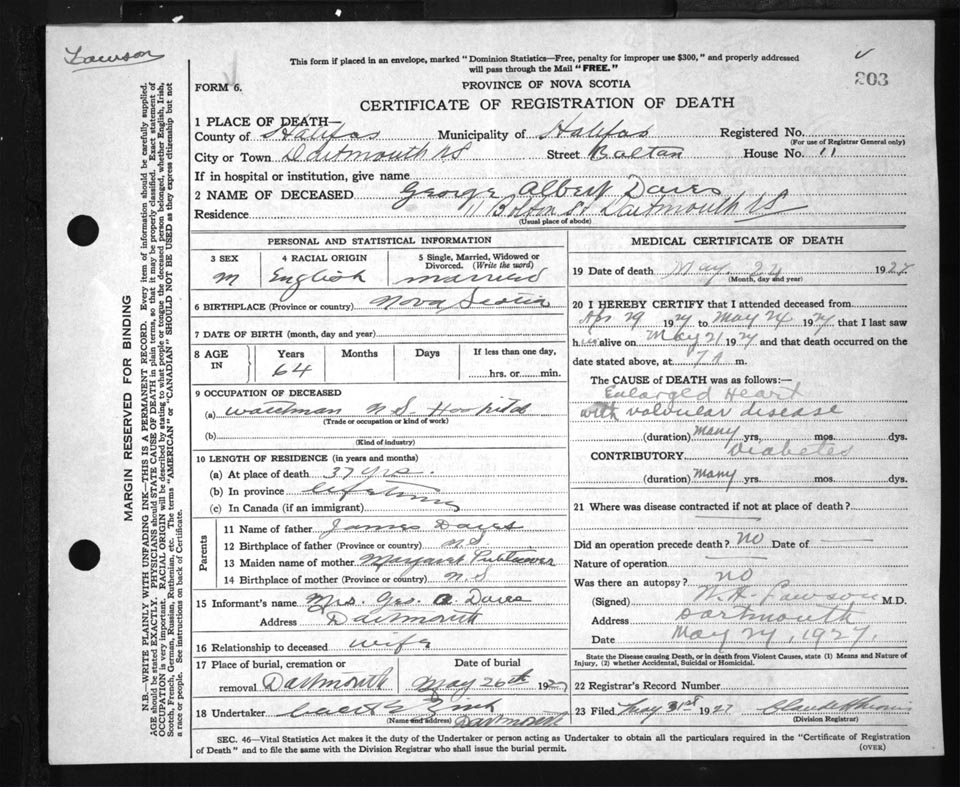 Lawson
This form if placed in an envelope, marked "Dominion Statistics—Free, penalty for improper use $300," and properly addressed
will pass through the Mail "FREE."
203
FORM 6.
PROVINCE OF NOVA SCOTIA
CERTIFICATE OF REGISTRATION OF DEATH
1 PLACE OF DEATH—
County of Halifax Municipality of Halifax Registered No.
(For use of Registrar General only)
City or Town Dartmouth NS Street Boltan House No. 11
If in hospital or institution, give name
2 NAME OF DECEASED George Albert Dares
Residence 11 Bolton St Dartmouth NS
(Usual place of abode)
PERSONAL AND STATISTICAL INFORMATION
3 SEX 4 RACIAL ORIGIN 5 Single, Married, Widowed or
Divorced. (Write the word)
M English married
6 BIRTHPLACE (Province or country) Nova Scotia
7 DATE OF BIRTH (month, day and year)
8 AGE IN Years Months Days If less than one day,
64 hrs. or min.
9 OCCUPATION OF DECEASED
(a) Watchman N.S. Hospital
(Trade or occupation or kind of work)
(b)
(Kind of industry)
10 LENGTH OF RESIDENCE (in years and months)
(a) At place of death 37 yrs.
(b) In province lifetime
(c) In Canada (if an immigrant)
Parents
11 Name of father James Dares
12 Birthplace of father (Province or country) N.S.
13 Maiden name of mother Margaret
14 Birthplace of mother (Province or country) N.S
15 Informant's name Mrs. Geo. A. Dares
Address Dartmouth
16 Relationship to deceased wife
17 Place of burial, cremation or Date of burial
removal Dartmouth May 26th 1927
18 Undertaker Zink
(Name and address) Dartmouth
MEDICAL CERTIFICATE OF DEATH
19 Date of death May 24 1927
(Month, day and year)
20 I HEREBY CERTIFY that I attended deceased from
Apr 29 1927 to May 24 1927 that I last saw
him alive on May 21 1927 and that death occurred on the
date stated above, at 7 A m.
The CAUSE of DEATH was as follows:—
Enlarged Heart
with valvular disease
(duration) many yrs. mos. dys.
CONTRIBUTORY Diabetes
(duration) many yrs. mos. dys.
21 Where was disease contracted if not at place of death?
Did an operation precede death? NO Date of
Nature of operation
Was there an autopsy? no
(Signed) Lawson M.D.
Address Dartmouth
Date May 24, 1927.
State the Disease causing Death, or in death from Violent Causes, state (1) Means and Nature of
Injury, (2) whether Accidental, Suicidal or Homicidal.
22 Registrar's Record Number
23 Filed May 31st 1927
(Division Registrar)
SEC. 46—Vital Statistics Act makes it the duty of the Undertaker or person acting as Undertaker to obtain all the particulars required in the "Certificate of Registration
of Death" and to file the same with the Division Registrar who shall issue the burial permit.
(OVER)
MARGIN RESERVED FOR BINDING
N.B.—WRITE PLAINLY WITH UNFADING INK—THIS IS A PERMANENT RECORD. Every item of information should be carefully supplied.
AGE should be stated EXACTLY. PHYSICIANS should STATE CAUSE OF DEATH in plain terms, so that it may be properly classified. Exact statement of
OCCUPATION is very important. RACIAL ORIGIN will be described by stating to what people or tongue the deceased person belonged, whether English, Irish,
Scotch, French, German, Russian, Ruthenian, etc. The terms "AMERICAN" or "CANADIAN" SHOULD NOT BE USED as they express citizenship but not
a race or people. See instructions on back of Certificate.